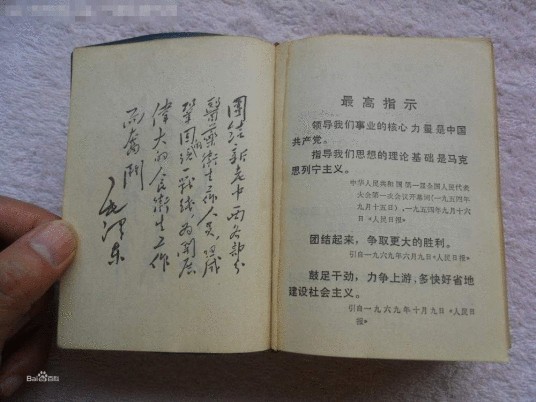 團结新老中西各部分
醫藥衛生工作人员，组成
鞏固的统一战线，为開展
偉大的人民衛生工作
而奮鬥
毛泽东
最高指示
领导我们事业的核心力量是中国
共产党。
指导我们思想的理论基础是马克
思列宁主义。
中华人民共和国第一届全国人民代表
大会第一次会议开幕词(一九五四年
九月十五日)，一九五四年九月十六
日《人民日报》
团结起来，争取更大的胜利。
引自一九六九年六月九日《人民日报》
鼓足干劲，力争上游，多快好省地
建设社会主义。
引自一九六九年十月九日《人民日
报》
Baidu百科